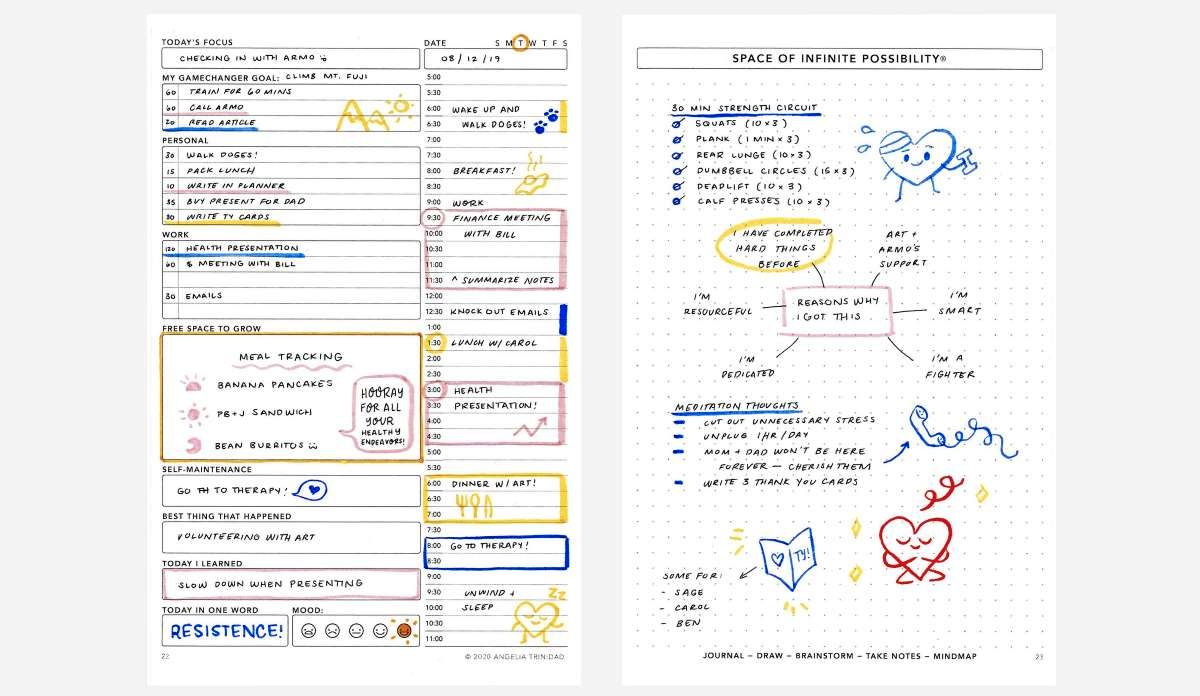 TODAY'S FOCUS
CHECKING IN WITH ARMO
MY GAMECHANGER GOAL: CLIMB MT. FUJI
60 TRAIN FOR 60 MINS
60 CALL ARMO
20 READ ARTICLE
PERSONAL
30 WALK DOGES!
15 PACK LUNCH
10 WRITE IN PLANNER
35 BUY PRESENT FOR DAD
30 WRITE TY CARDS
WORK
120 HEALTH PRESENTATION
60 $ MEETING WITH BILL
30 EMAILS
FREE SPACE TO GROW
MEAL TRACKING
BANANA PANCAKES
PB+J SANDWICH
BEAN BURRITOS
HOORAY
FOR ALL
YOUR
HEALTHY
ENDEAVORS!
SELF-MAINTENANCE
GO TO THERAPY!
BEST THING THAT HAPPENED
VOLUNTEERING WITH ART
TODAY I LEARNED
SLOW DOWN WHEN PRESENTING
TODAY IN ONE WORD
RESISTENCE!
MOOD:
22
DATE S M T W T F S
08/12/19
5:00
5:30
6:00 WAKE UP AND
6:30 WALK DOGES!
7:00
7:30
8:00 BREAKFAST!
8:30
9:00 WORK
9:30 FINANCE MEETING
10:00 WITH BILL
10:30
11:00
11:30 ^ SUMMARIZE NOTES
12:00
12:30 KNOCK OUT EMAILS
1:00
1:30 LUNCH W/ CAROL
2:00
2:30
3:00 HEALTH
3:30 PRESENTATION!
4:00
4:30
5:00
5:30
6:00 DINNER W/ ART!
6:30
7:00
7:30
8:00 GO TO THERAPY!
8:30
9:00
9:30 UNWIND +
10:00 SLEEP
ZZ
10:30
11:00
© 2020 ANGELIA TRINIDAD
SPACE OF INFINITE POSSIBILITY®
30 MIN STRENGTH CIRCUIT
SQUATS (10×3)
PLANK (1 MIN×3)
REAR LUNGE (10×3)
DUMBBELL CIRCLES (15×3)
DEADLIFT (10×3)
CALF PRESSES (10×3)
I HAVE COMPLETED
HARD THINGS
BEFORE
ART +
ARMO'S
SUPPORT
I'M
RESOURCEFUL
REASONS WHY
I GOT THIS
I'M
SMART
I'M
DEDICATED
I'M A
FIGHTER
MEDITATION THOUGHTS
- CUT OUT UNNECESSARY STRESS
- UNPLUG 1HR/DAY
- MOM + DAD WON'T BE HERE
FOREVER — CHERISH THEM
- WRITE 3 THANK YOU CARDS
TY!
SOME FOR:
- SAGE
- CAROL
- BEN
JOURNAL – DRAW – BRAINSTORM – TAKE NOTES – MINDMAP
23